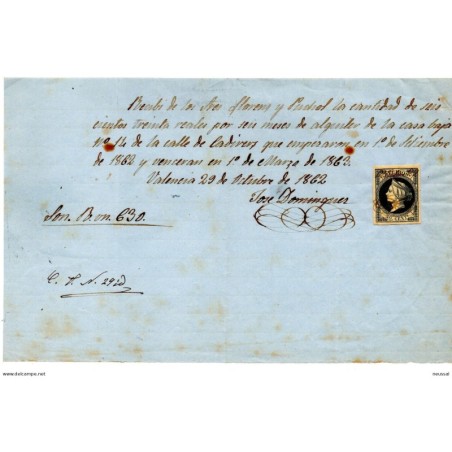 Recibi de los Sres Florens y Puchol la cantidad de seis
cientos treinta reales por seis meses de alquiler de la casa baja
nº 14 de la calle de Cadirers que empezaron en 1º de Setiembre
de 1862 y venceran en 1º de Marzo de 1863.
Valencia 29 de Octubre de 1862
Jose Dominguez
Son R. on 630.
C. F. N. 29 id
www.delcampe.net
neussal